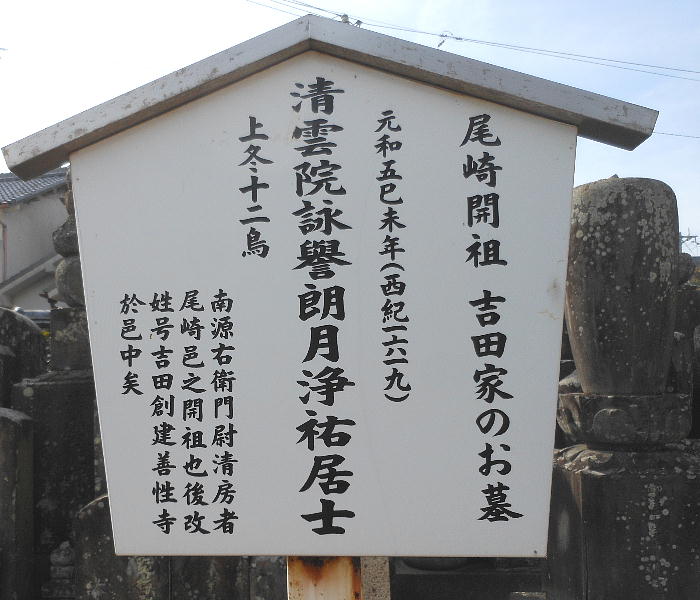 尾崎開祖 吉田家のお墓
元和五巳未年(西紀一六一九)
清雲院詠譽朗月浄祐居士
上冬十二烏
南源右衛門尉清房者
尾崎邑之開祖也後改
姓号吉田創建善性寺
於邑中矣